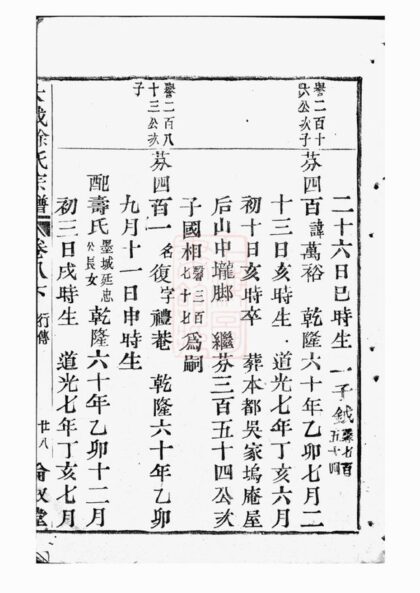 二十六日巳時生 一子鉞 譽七百五十四
譽二百十六公次子 芬四百 諱萬裕 乾隆六十年乙卯七月二
十三日亥時生 道光七年丁亥六月
初十日亥時卒 葬本都吳家塢庵屋
后山中壠脚 繼芬三百五十四公次
子國相 譽三百七十七 爲嗣
譽二百八十三公次子 芬四百一 名復字禮菴 乾隆六十年乙卯
九月十一日申時生
配壽氏 墨城廷忠公長女 乾隆六十年乙卯十二月
初三日戌時生 道光七年丁亥七月
徐氏宗譜 卷八下 行傳 廿八 堂